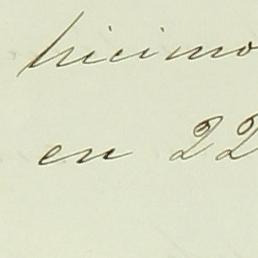 hicimo
en 22